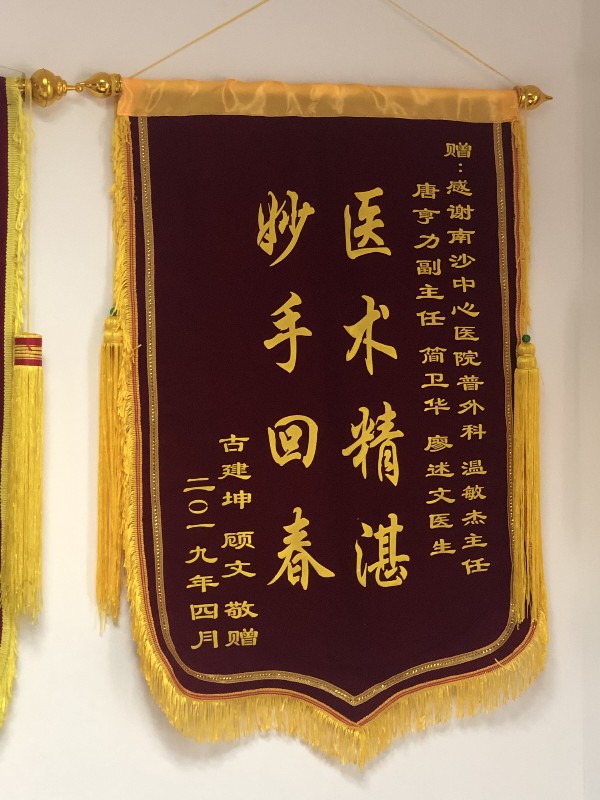 赠：感谢南沙中心医院普外科 温敏杰主任
唐亨力副主任 简卫华 廖述文医生
医术精湛
妙手回春
古建坤 顾文 敬赠
二〇一九年四月